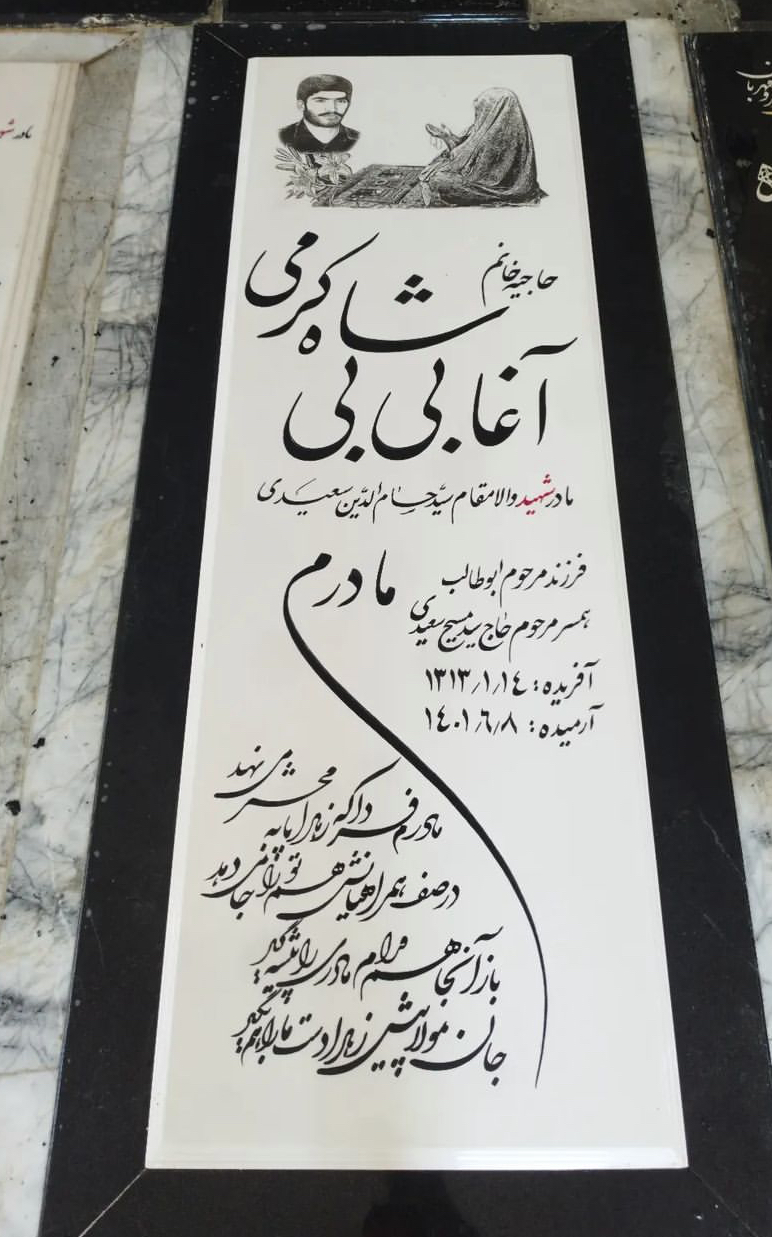 حاجیه خانم
شاه کرمی
آغا بی بی
مادر شهید والامقام سیّد حسام الدّین سعیدی
فرزند مرحوم ابوطالب
همسر مرحوم حاج سید مسیح سعیدی
آفریده: ۱۳۱۳/۱/۱٤
آرمیده: ۱٤۰۱/٦/۸
مادرم
مادرم فردا که زهرا پا به محشر می نهد
در صف همراهیانش هم تو را جا می دهد
باز آنجا هم مرام مادری را پیشه گیر
جان مولا پیش زهرا دست ما را هم بگیر
مادر